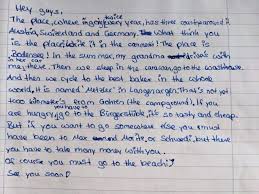 Hey guys,
The place, where in going every year, has three countries around it
Austria, Switzerland and Germany. What think you
is the place? Write it in the comments! The place is
Bodensee! In the summer, my grandma drives with
in her car
me, there. Then we sleep in the caravan, go to the washhouse
And then we cycle to the best baker in the whole
world, it is named Metzler in Langenargen. That's not yet
two kilometers from Gohren (the campground). If you
you have to
are hungry, go to the Bürgerstüble, it's so tasty and cheap.
But if you want to go somewhere else you must
have been to Max Moritz, or Schwedi, but there
you have to take many money with you.
Of course you must go to the beach!
See you soon!